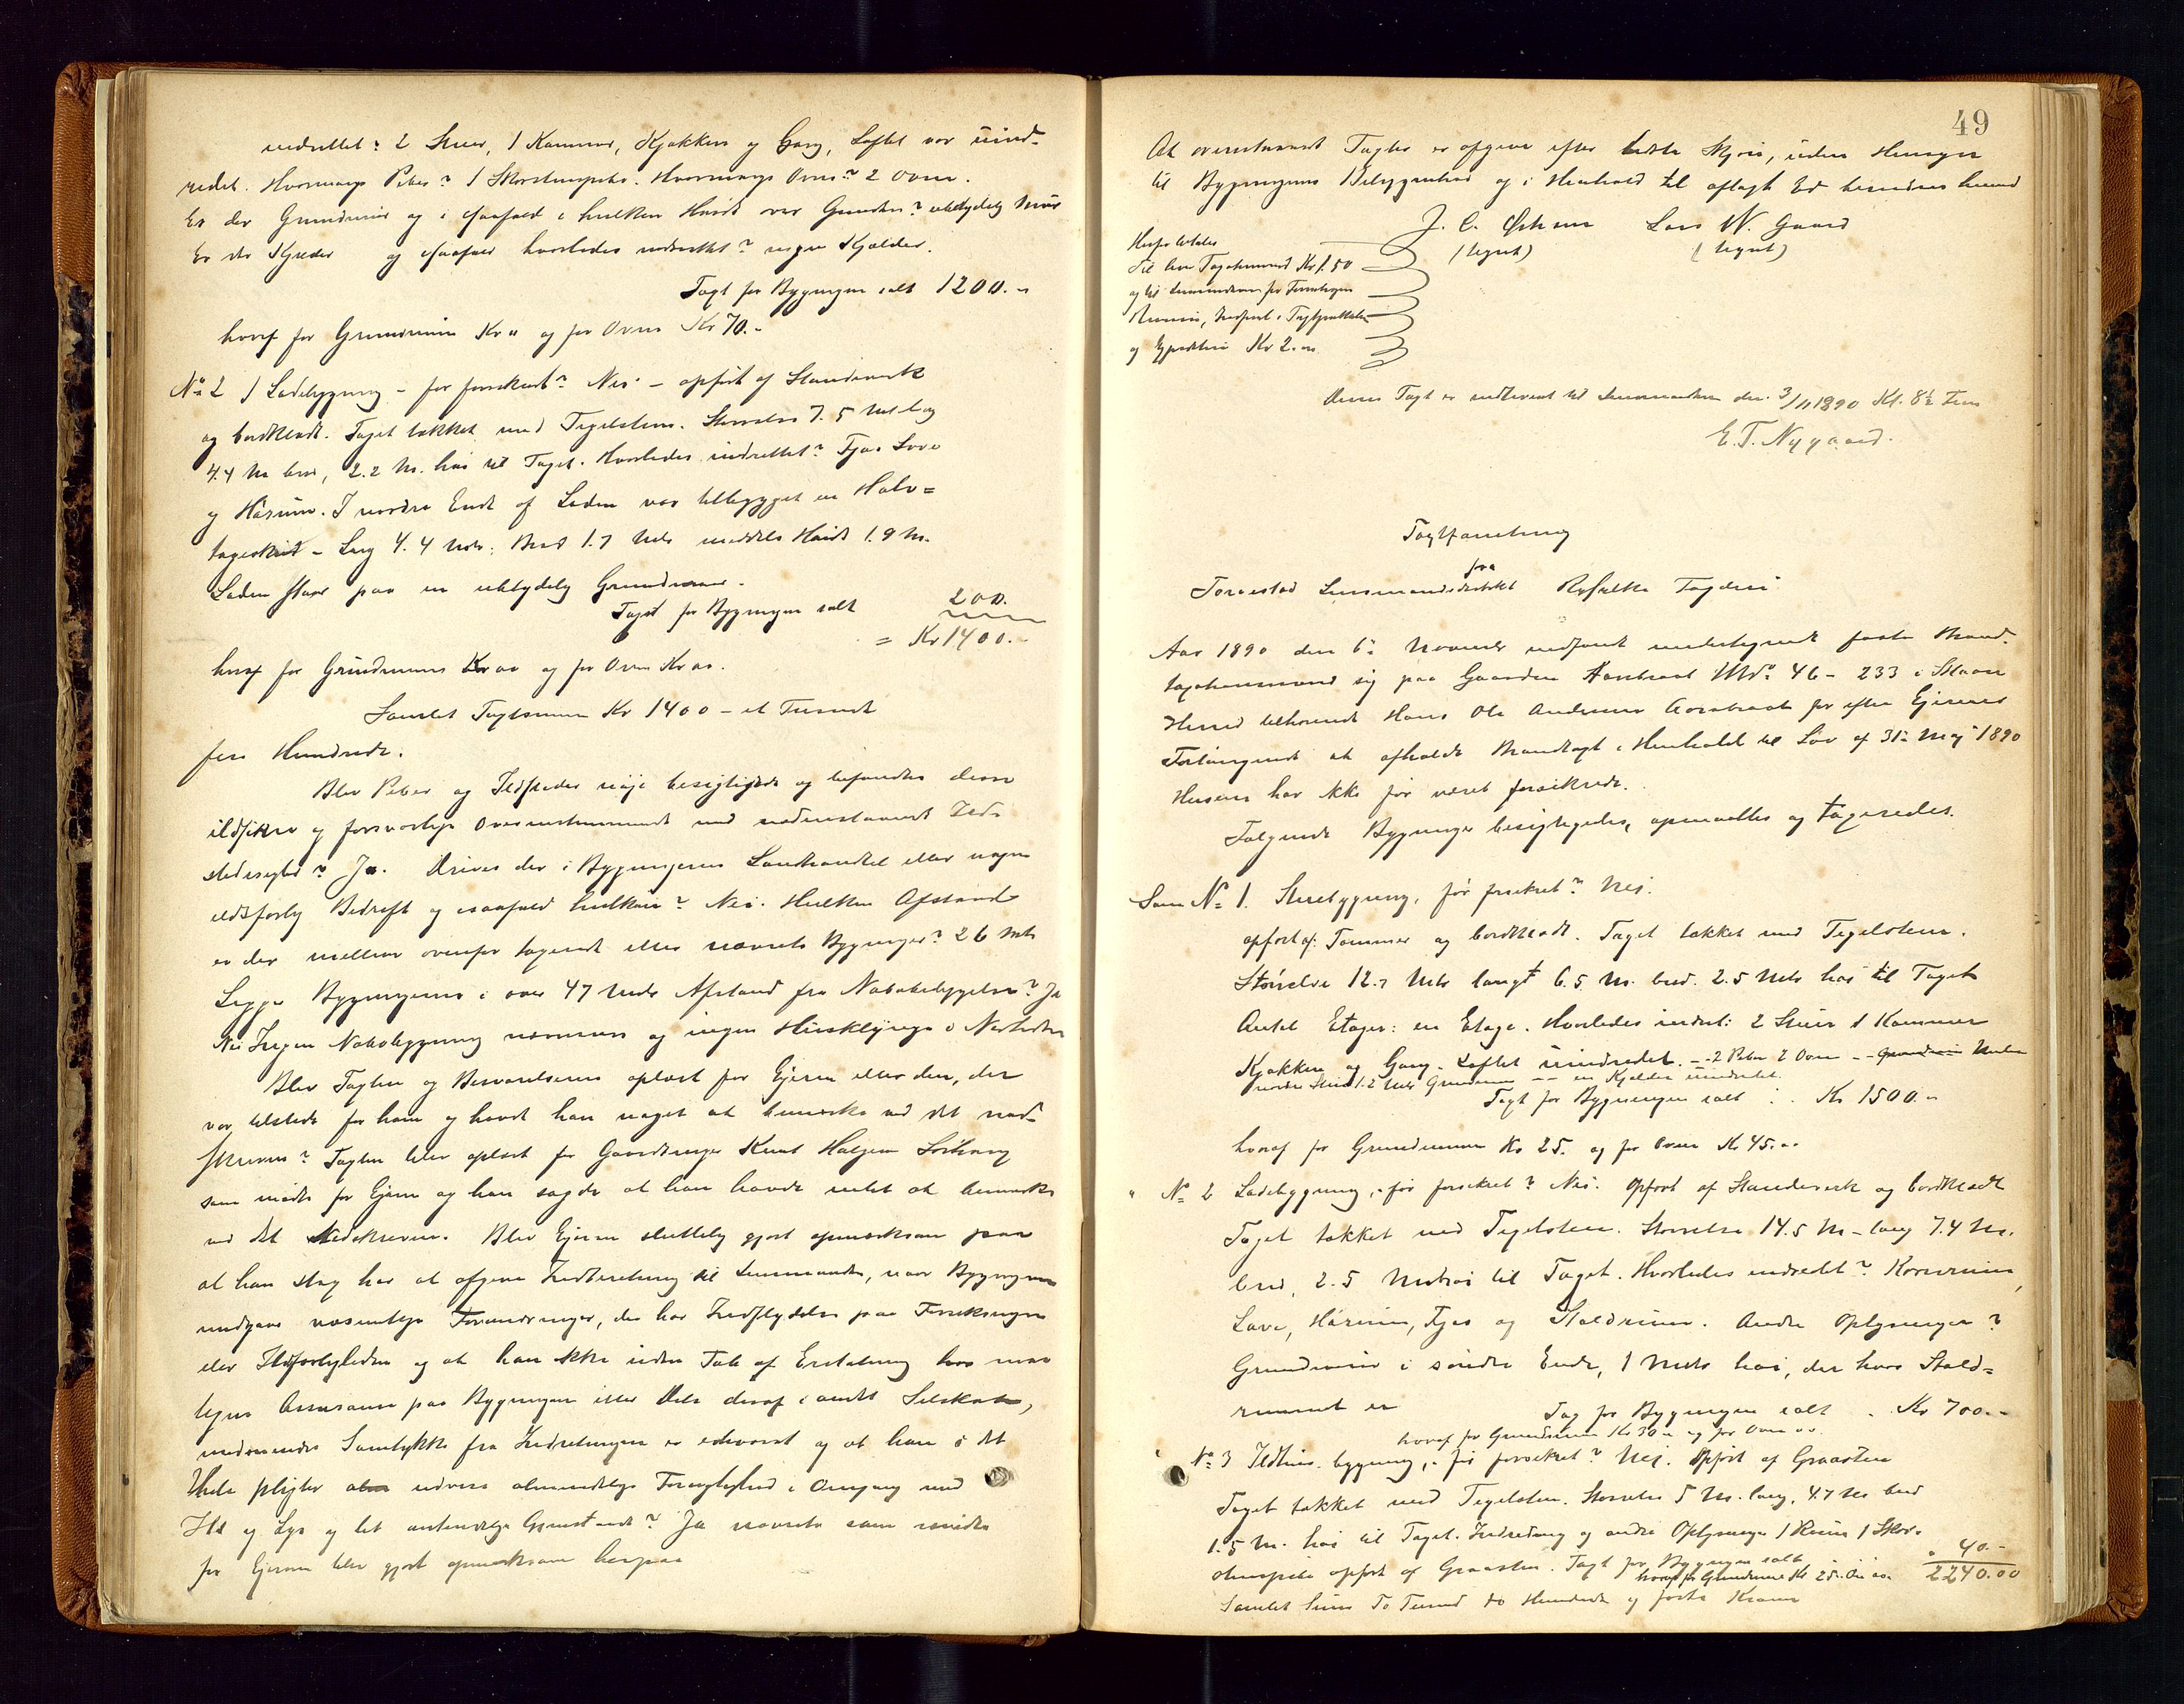 indrettet? 2 Stuer, 1 Kammer, Kjøkken og Gang, Loftet var uind-
redet. Hvormange Piber? 1 Skorstenspibe. Hvormange Ovne? 2 Ovne.
Er der Grundmur og i saafald i hvilken Høide over Grunden? ubetydelig Mur
Er der Kjelder og isaafald hvorledes indrettet? ingen Kjælder.
Taxt for Bygningen ialt 1200.-
hvoraf for Grundmuren Kr " og for Ovne Kr 70.-
No 2 1 Ladebygning - før forsikret? Nei - opført af Standværk
og bordklædt. Taget tækket med Tegelsten. Størrelse 7.5 Mtr lang
4.4 M bred, 2.2 M. høi til Taget. Hvorledes indrettet? Fjøs Love
og Hørum. I nordre Ende af Laden var tilbygget en Halv=
tagsskut - Lang 4.4 Mtr. Bred 1.7 Mtr middels Høide 1.9 M.
Laden staar paa en ubetydelig Grundmur.
Taxt for Bygningen ialt 200.
= Kr 1400.-
hvoraf for Grundmuren Kr oo og for Ovne Kr oo.
Samlet Taxtsum Kr 1400 - et Tusinde
fire Hundrede.
Blev Piber og Ildsteder nøje besigtigede og befandtes disse
ildsikre og forsvarlige Overensstemmende med nedenstaaende Ild-
stedsregler? Ja. Drives der i Bygningerne Landhandel eller nogen
ildsfarlig Bedrift og isaafald hvilken? Nei. Hvilken Afstand
er der mellem ovenfor taxerede eller nævnte Bygninger? 26 Mtr
Ligger Bygningerne i over 47 Mtr Afstand fra Nabobebyggelse? Ja
Nei Ingen Nabobygning nærmere og ingen Husklynge i Nærheden
Blev Taxten og Besvarelserne oplæst for Ejeren eller den, der
var tilstede for ham og havde han noget at bemærke ved det ned-
skrevne? Taxten blev oplæst for Gaardbruger Knut Halgien
som mødte for Ejeren og han sagde at han havde intet at bemærke
ved det Nedskrevne. Blev Ejeren sluttelig gjort opmærksom paa
at han strax har at afgive Indberetning til Lensmanden, naar Bygningen
undgaar væsentlige Forandringer, der har Indflydelse paa Forsikringen
eller Ildsfarligheden og at han ikke uden Tab af Erstatning hvor man
tegner Assurance paa Bygningen eller Dele deraf i andet Selskab,
medmindre Samtykke fra Indretningen er erhvervet og at han i det
Hele pligter at udvise almindelige Forsigtighed i Omgang med
Ild og Lys og let antændelige Gjenstande? Ja nævnte som mødte
for Ejeren blev gjort opmærksom herpaa
49
At ovenstaaende Taxter er afgivne efter bedste Skjøn, uden Hensyn
til Bygningens Beliggenhed og i Henhold til aflagt Ed
J. C. Lars W. Gaard
(tegnet) (tegnet)
Herfor betales
til hver Taxtmand Kr 1.50
og til Lensmanden for Forretningen
Indført i Taxtprotokollen
og Expedition Kr 2.oo
Denne Taxt er indleveret til Lensmanden den 3/11 1890 Kl. 8½ Fm
E. T. Nygaard.
Taxtforretning
fra
Torvestad Lensmandsdistrikt Ryfylke Fogderi
Aar 1890 den 6te November indfandt undertegnede faste Brand-
taxtmænd sig paa Gaarden Aarebrot MNo. 46 - 233 i Skaare
Herred tilhørende Hans Ole Andreas Aarebrot for efter Ejerens
Forlangende at afholde Brandtaxt i Henhold til Lov af 31te Maj 1890
Husene har ikke før været forsikrede.
Følgende Bygninger besigtigedes, opmaaltes og taxeredes.
Som No 1. Stuebygning, før forsikret? Nei.
opført af: Tømmer og bordklædt. Taget tækket med Tegelsten.
Størrelse 12.7 Mtr langt 6.5 M. bred. 2.5 Mtr høi til Taget
Antal Etager: en Etage. Hvorledes indret: 2 Stuer 1 Kammer
Kjøkken og Gang. Loftet uindredet. - 2 Piber 2 Ovne - Grundmur Under
nordre Stue 1.2 Mtr Grundmur - en Kjelder uindredet.
Taxt for Bygningen ialt : Kr 1500.-
hvoraf for Grundmuren Kr 25. og for Ovne Kr 45.oo
" No 2 Ladebygning,- før forsikret? Nei. Opført af Standeverk og bordklædt
Taget tækket med Tegelsten. Størrelse 14.5 M - lang 7.4 M.
bred, 2.5 M høi til Taget. Hvorledes indredet? Kornrum,
Lave, Hørum, Fjøs og Staldrum. Andre Oplysninger?
Grundmur i søndre Ende, 1 Mtr høi, der hvor Stald=
rummet er Tax for Bygningen ialt . Kr 700.-
hvoraf for Grundmuren Kr 30 - og for Ovne oo.
" No 3 Ildhusbygning,- før forsikret? Nei. Opført af Graasten
Taget tækket med Tegelsten. Størrelse 5 M. lang, 4.7 M bred
1.5 M. høi til Taget. Indredning og andre Oplysninger 1 Rum 1 Skor-
stenspibe opført af Graasten. Taxt for Bygningen ialt " 40.-
hvoraf for Grundmuren Kr 25. Ovn oo. 2240.00
Samlet Sum To Tusind to Hundrede og førti Kroner